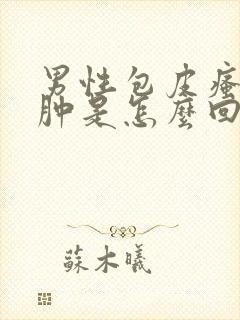 男性包皮瘙
肿是怎麼回
蘇木曦